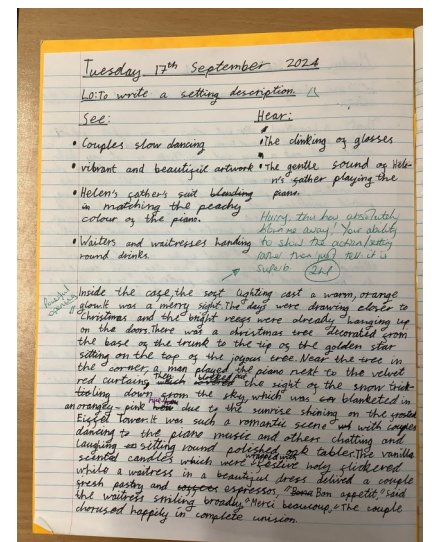 Tuesday 17th September 2024
LO: To write a setting description.
See:
Hear:
• Couples slow dancing
• The clinking of glasses
• vibrant and beautiful artwork
• The gentle sound of Helen's father playing the piano.
• Helen's father's suit blending in matching the peachy colour of the piano.
• Waiters and waitresses handing round drinks.
Harry, this has absolutely blown me away! Your ability to show the action/setting rather than just tell it is superb.
2HP
Inside the case, the soft lighting cast a warm, orange
glow. It was a merry sight. The days were drawing closer to
Christmas and the bright reefs were already hanging up
on the doors. There was a christmas tree decorated from
the base of the trunk to the tip of the golden star
sitting on the top of the joyous tree. Near the tree in
the corner, a man played the piano next to the velvet
red curtains, which covered the sight of the snow trick-
ling down from the sky, which was blanketed in
an orangey-pink due to the sunrise shining on the
Eiffel Tower. It was such a romantic scene with couples
dancing to the piano music and others chatting and
laughing sitting round polished oak tables. The vanilla
scented candles which were festive holy flickered
while a waitress in a beautiful dress delived a couple
fresh pastry and espressos, "Bon appetit," said
the waitress smiling broadly, "Merci beaucoup," The couple
chorused happily in complete unison.